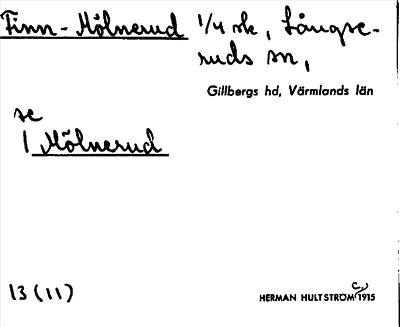 Finn-Mölnerud 1/4 sk, Långse-
ruds sn,
Gillbergs hd, Värmlands län
se
1 Mölnerud
13 (11)
HERMAN HULTSTRÖM C) 1915